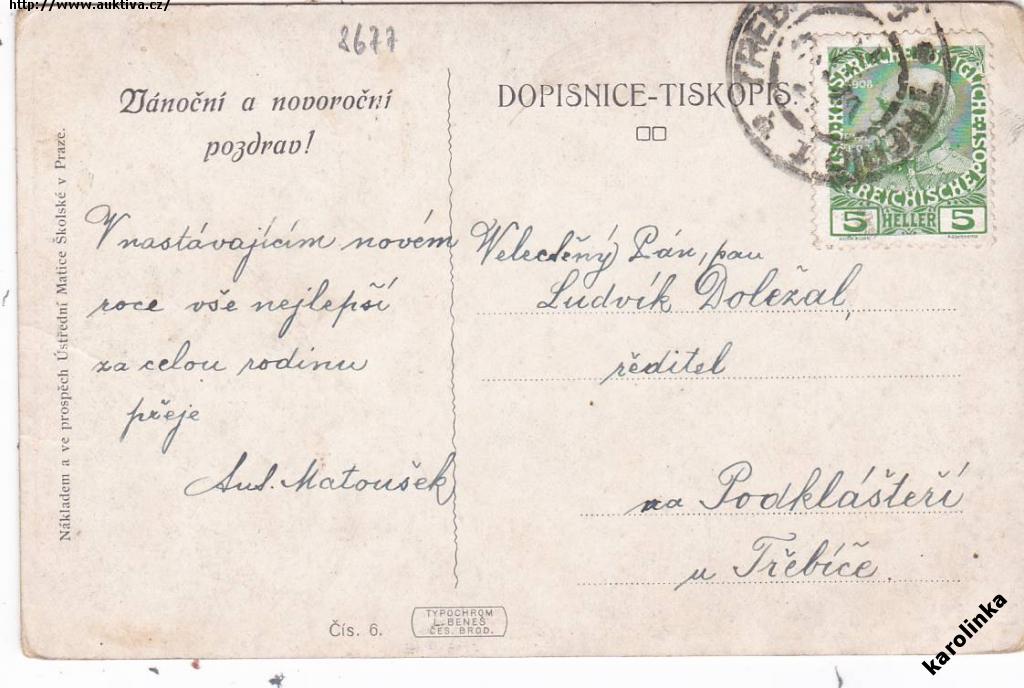 http://www.auktiva.cz/
8677
Vánoční a novoroční
pozdrav!
DOPISNICE-TISKOPIS.
Nákladem a ve prospěch Ústřední Matice Školské v Praze.
V nastávajícím novém
roce vše nejlepší
za celou rodinu
přeje
Ant. Matoušek
Velectěný Pán, pan
Ludvík Doležal,
ředitel
na Podklášteří
u Třebíče.
1908
5 HELLER 5
Čís. 6.
TYPOCHROM
L. BENEŠ
ČES. BROD.
karolinka